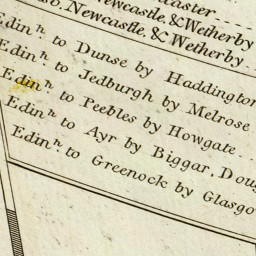 caster
Newcastle, & Wetherby
do. Newcastle, & Wetherby
Edinh. to Dunse by Haddington
Edinh. to Jedburgh by Melrose
Edinh. to Peebles by Howgate
Edinh. to Ayr by Biggar, Doug
Edinh. to Greenock by Glasgo